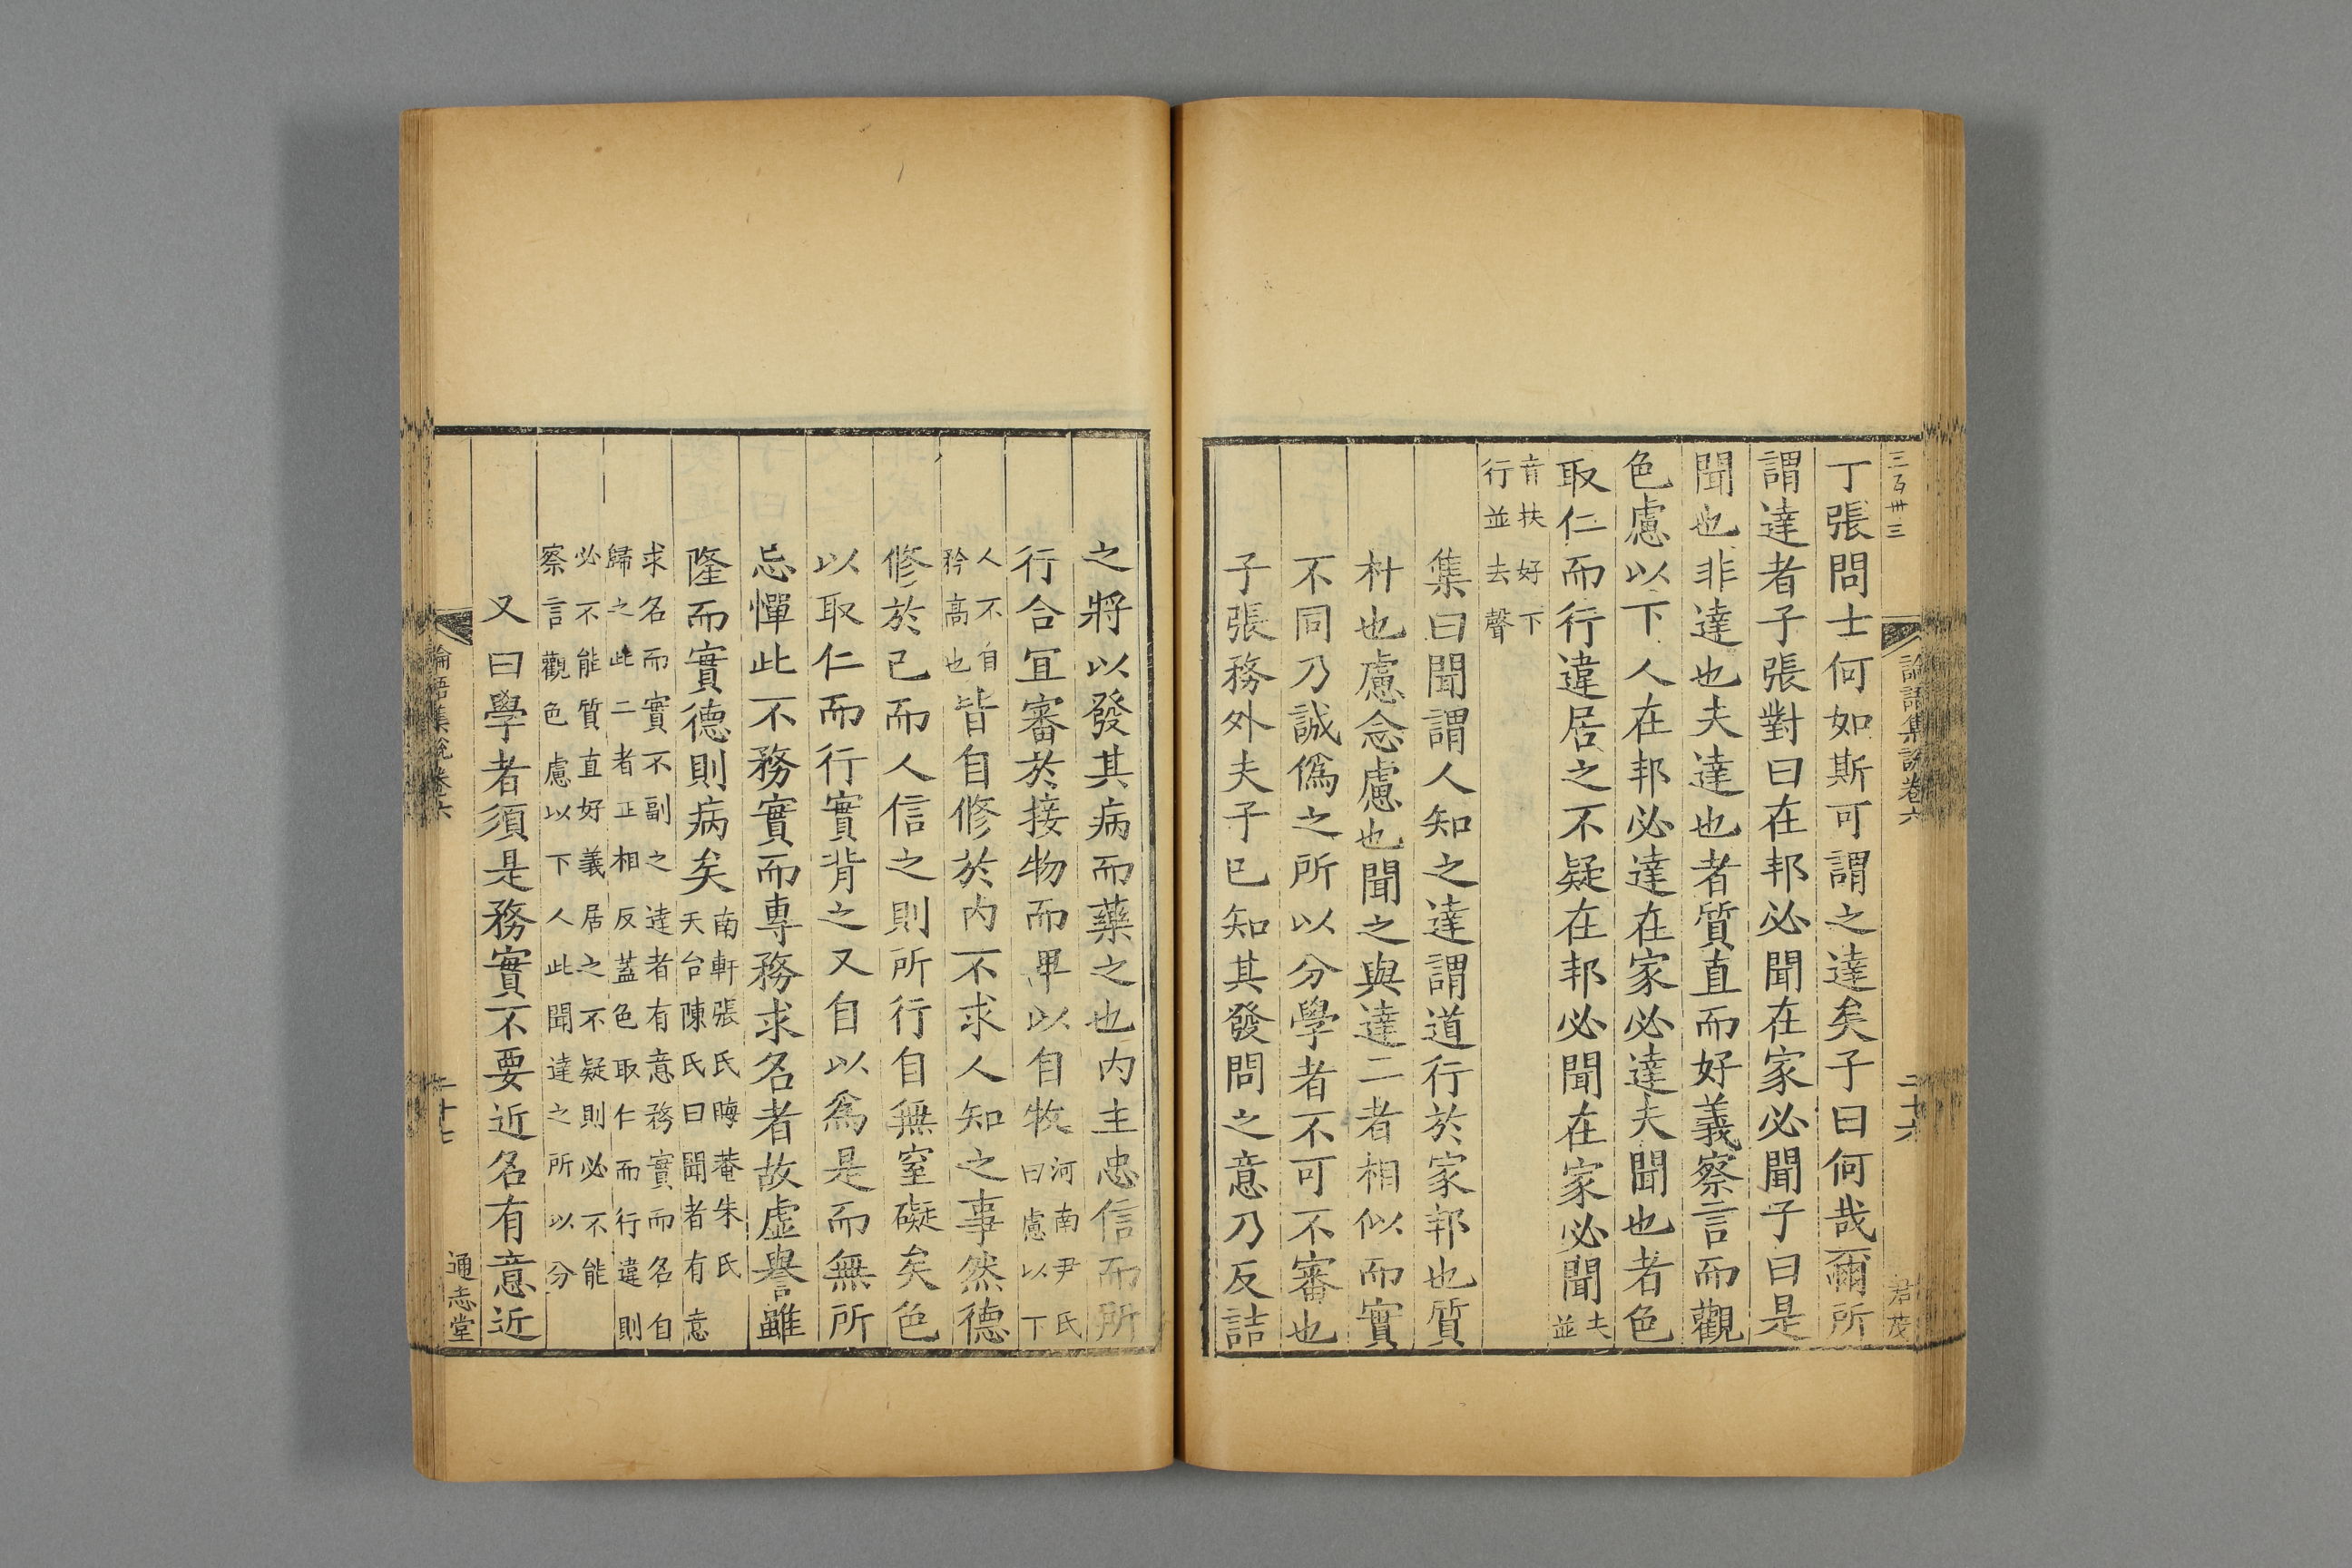 三百卅三
論語集説卷六
二十六
君茂
丁張問士何如斯可謂之達矣子曰何哉爾所
謂達者子張對曰在邦必聞在家必聞子曰是
聞也非達也夫達也者質直而好義察言而觀
色慮以下人在邦必達在家必達夫聞也者色
取仁而行違居之不疑在邦必聞在家必聞夫並
音扶好下
行並去聲
集曰聞謂人知之達謂道行於家邦也質
朴也慮念慮也聞之與達二者相似而實
不同乃誠僞之所以分學者不可不審也
子張務外夫子已知其發問之意乃反詰
之將以發其病而藥之也内主忠信而所
行合宜審於接物而卑以自牧河南尹氏曰慮以下
人不自矜高也皆自修於内不求人知之事然德
修於己而人信之則所行自無窒礙矣色
以取仁而行實背之又自以爲是而無所
忌憚此不務實而專務求名者故虚譽雖
隆而實德則病矣南軒張氏晦菴朱氏天台陳氏曰聞者有意
求名而實不副之達者有意務實而名自
歸之此二者正相反蓋色取仁而行違則
必不能質直好義居之不疑則必不能
察言觀色慮以下人此聞達之所以分
又曰學者須是務實不要近名有意近
論語集説卷六
二十七
通志堂